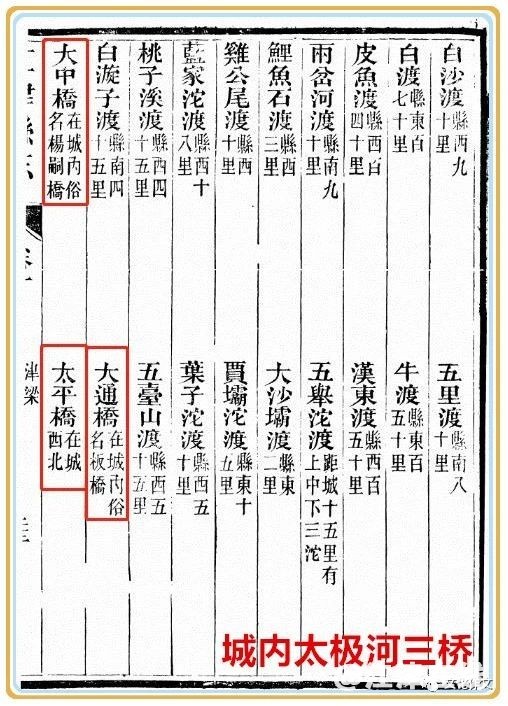 白沙渡縣西九十里 五里渡縣南八里
白渡縣東百七十里 牛渡縣東百五十里
皮魚渡縣西百四十里 漢東渡縣西百五十里
雨岔河渡縣南九十里 五舉沱渡距城十五里有上中下三沱
鯉魚石渡縣西三里 大沙壩渡縣東二里
雞公尾渡縣西十里 賈壩沱渡縣東十五里
藍家沱渡縣西十八里 葉子沱渡縣西五十里
桃子溪渡縣西四十五里 五臺山渡縣西五十五里
白漩子渡縣南四十五里 大通橋在城內俗名板橋
大中橋在城內俗名楊嗣橋 太平橋在城西北
津梁
城内太极河三桥